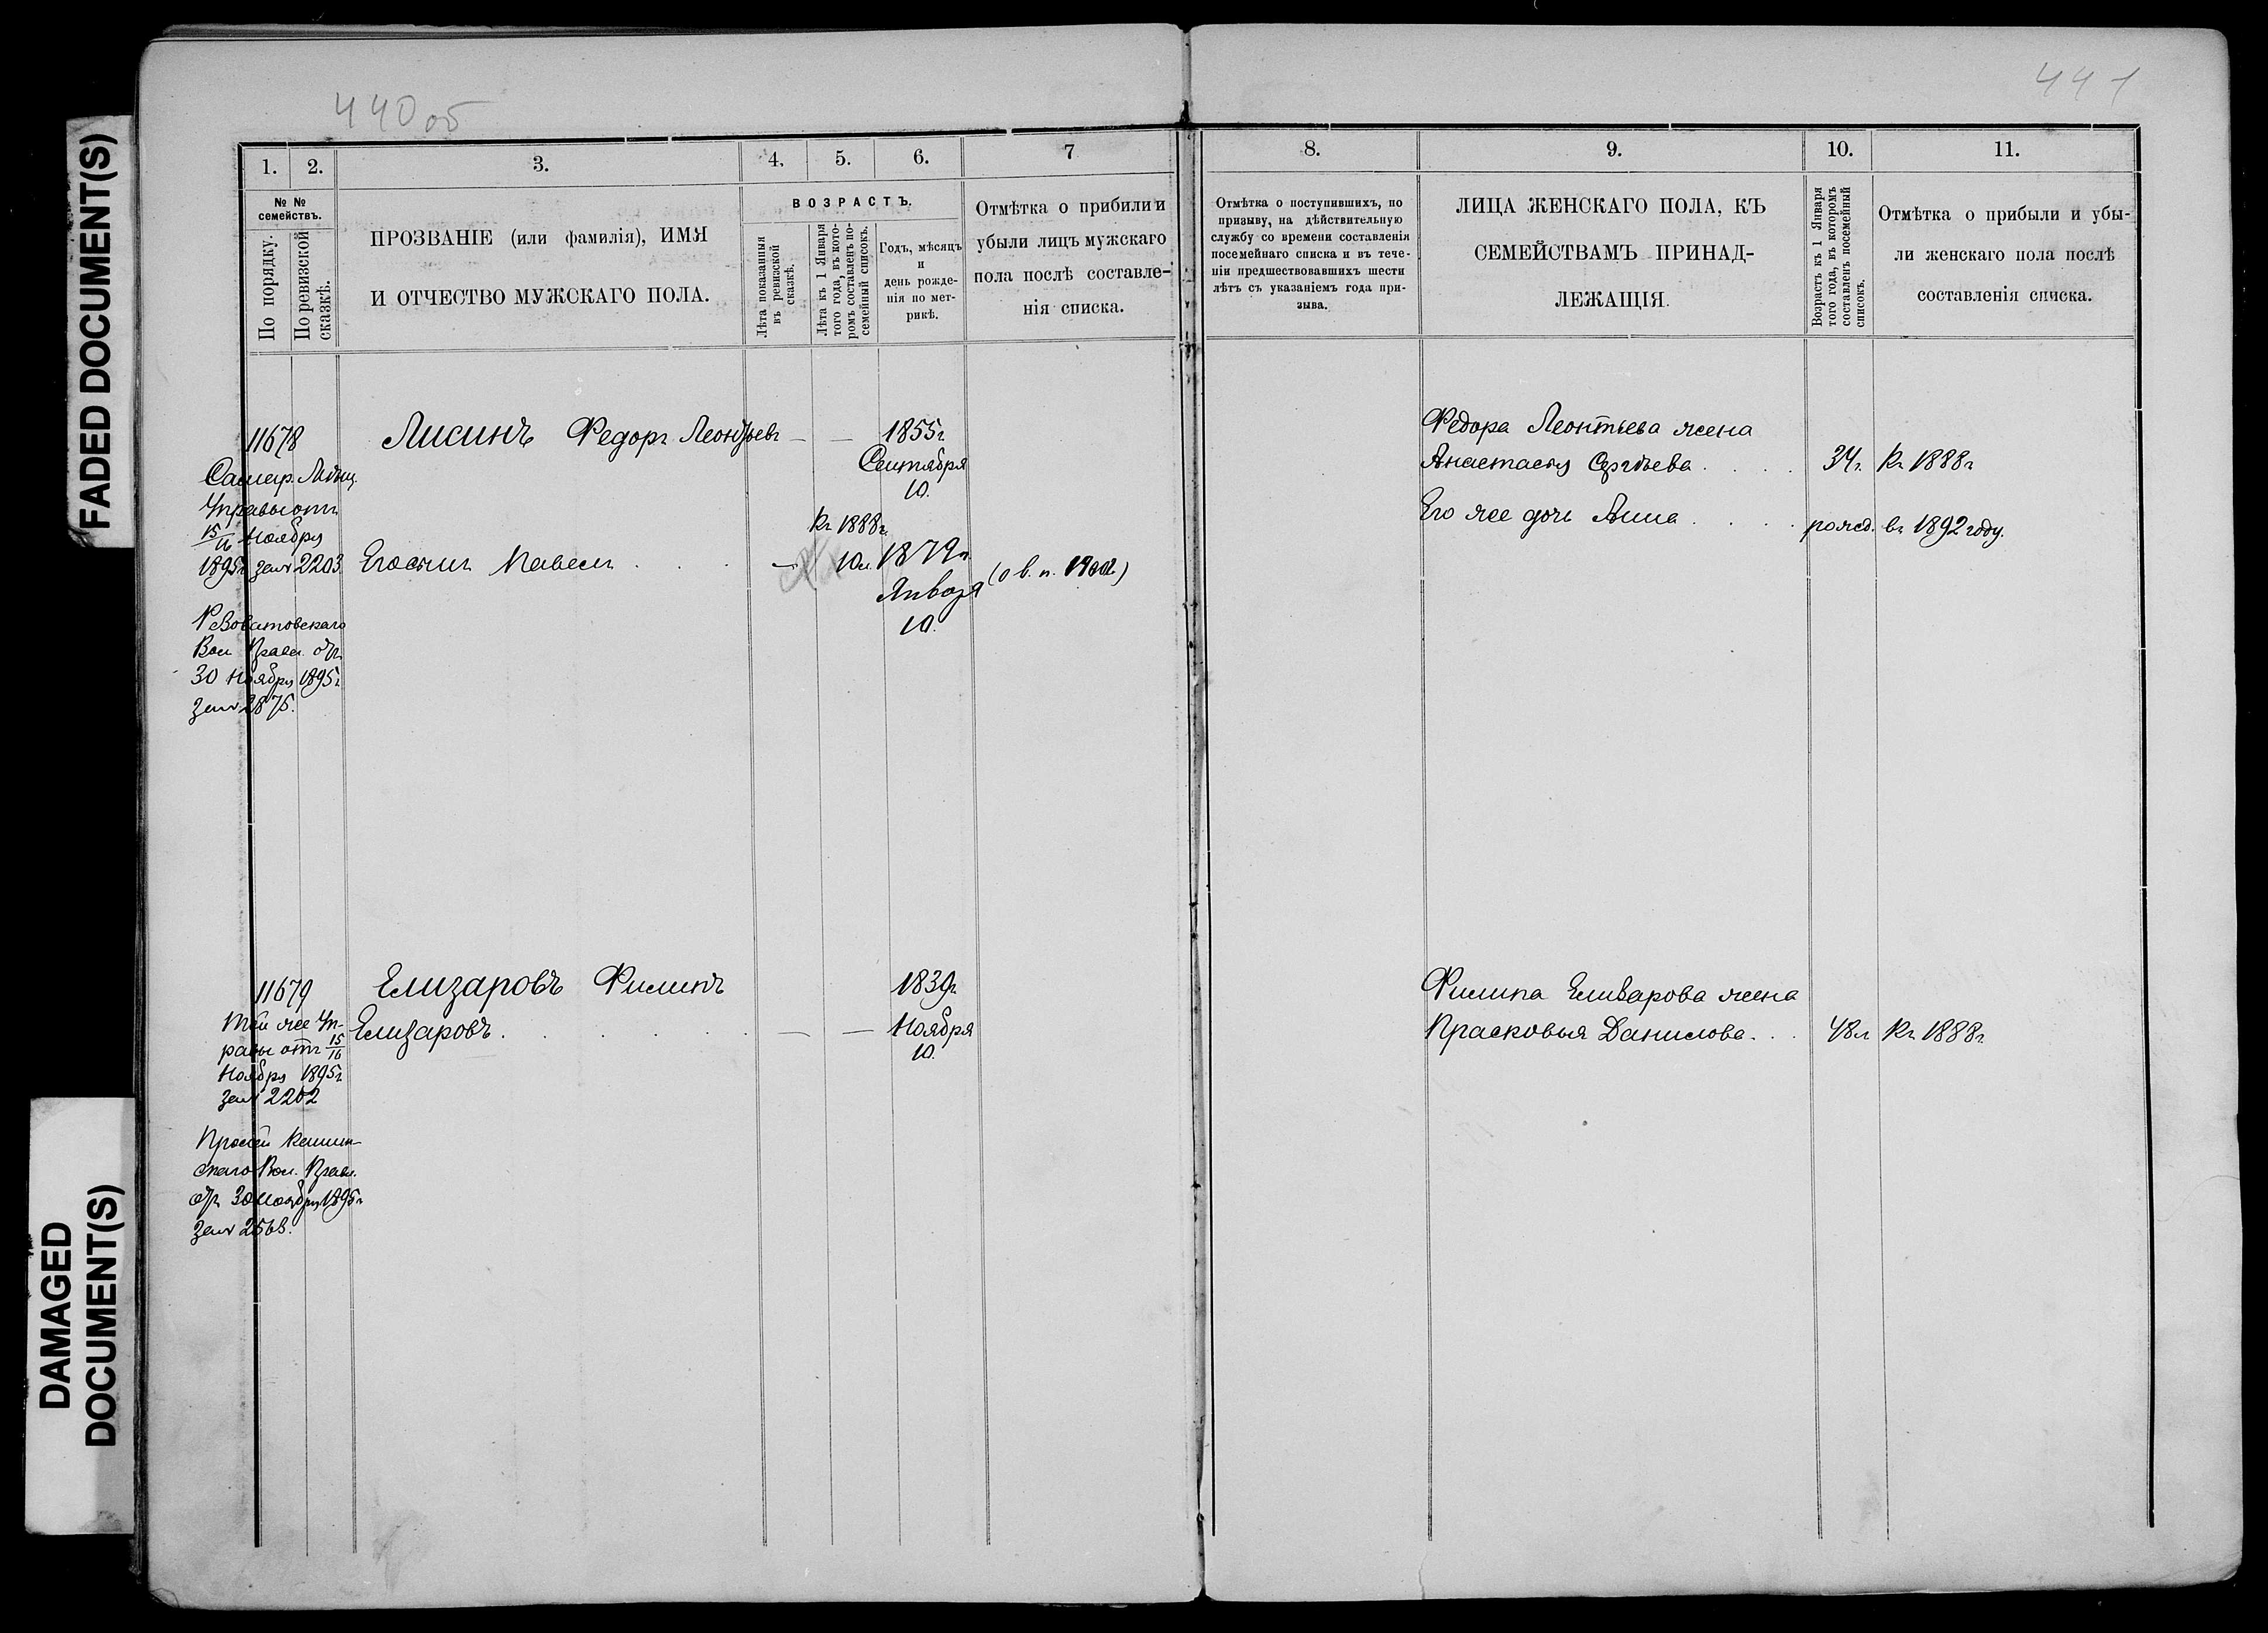 FADED DOCUMENT(S)
DAMAGED
DOCUMENT(S)
440 об
441
1.
2.
3.
4.
5.
6.
7
№ №
семействъ.
По порядку.
По ревизской
сказкѣ.
ПРОЗВАНІЕ (или фамилія), ИМЯ
И ОТЧЕСТВО МУЖСКАГО ПОЛА.
ВОЗРАСТЪ.
Лѣта показанныя
въ ревизской
сказкѣ.
Лѣта къ 1 Января
того года, въ кото-
ромъ составленъ по-
семейный списокъ.
Годъ, мѣсяцъ
и
день рожде-
нія по мет-
рикѣ.
Отмѣтка о прибыли и
убыли лицъ мужскаго
пола послѣ составле-
нія списка.
11678
Самар. Мѣщ.
Управы отъ
15/16 Ноября
1895г за № 2203
Вол. Правл. отъ
30 Ноября 1895г
за № 2875.
Лисинъ Федоръ Леонтьевъ — —
1855г
Сентября
10.
Къ 1888г
Его сынъ Павелъ . . .
10л. 1879г.
Января
10.
11679
Той же Уп-
равы отъ 15/16
Ноября 1895г
за № 2202
Вол. Правл.
отъ 30 Ноября 1895г
за № 2568.
Елизаровъ Филипъ
Елизаровъ. . . . . — —
1839г
Ноября
10.
8.
9.
10.
11.
Отмѣтка о поступившихъ, по
призыву, на дѣйствительную
службу со времени составленія
посемейнаго списка и въ тече-
ніи предшествовавшихъ шести
лѣтъ съ указаніемъ года при-
зыва.
ЛИЦА ЖЕНСКАГО ПОЛА, КЪ
СЕМЕЙСТВАМЪ ПРИНАД-
ЛЕЖАЩІЯ.
Возрастъ къ 1 Января
того года, въ которомъ
составленъ посемейный
списокъ.
Отмѣтка о прибыли и убы-
ли женскаго пола послѣ
составленія списка.
Федора Леонтьева жена
Анастасія Сергѣева . . . . 34г. Къ 1888г
Его же дочь Анна . . . . рожд. въ 1892 году.
Филипа Елизарова жена
Прасковья Данилова. . . 48л Къ 1888г